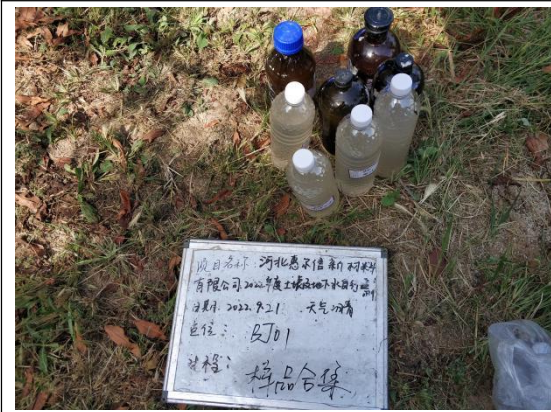 项目名称：河北惠尔信新材料
有限公司2022年度土壤及地下水自行监测
日期：2022.9.21 天气：晴
点位：BJ01
流程：样品合集